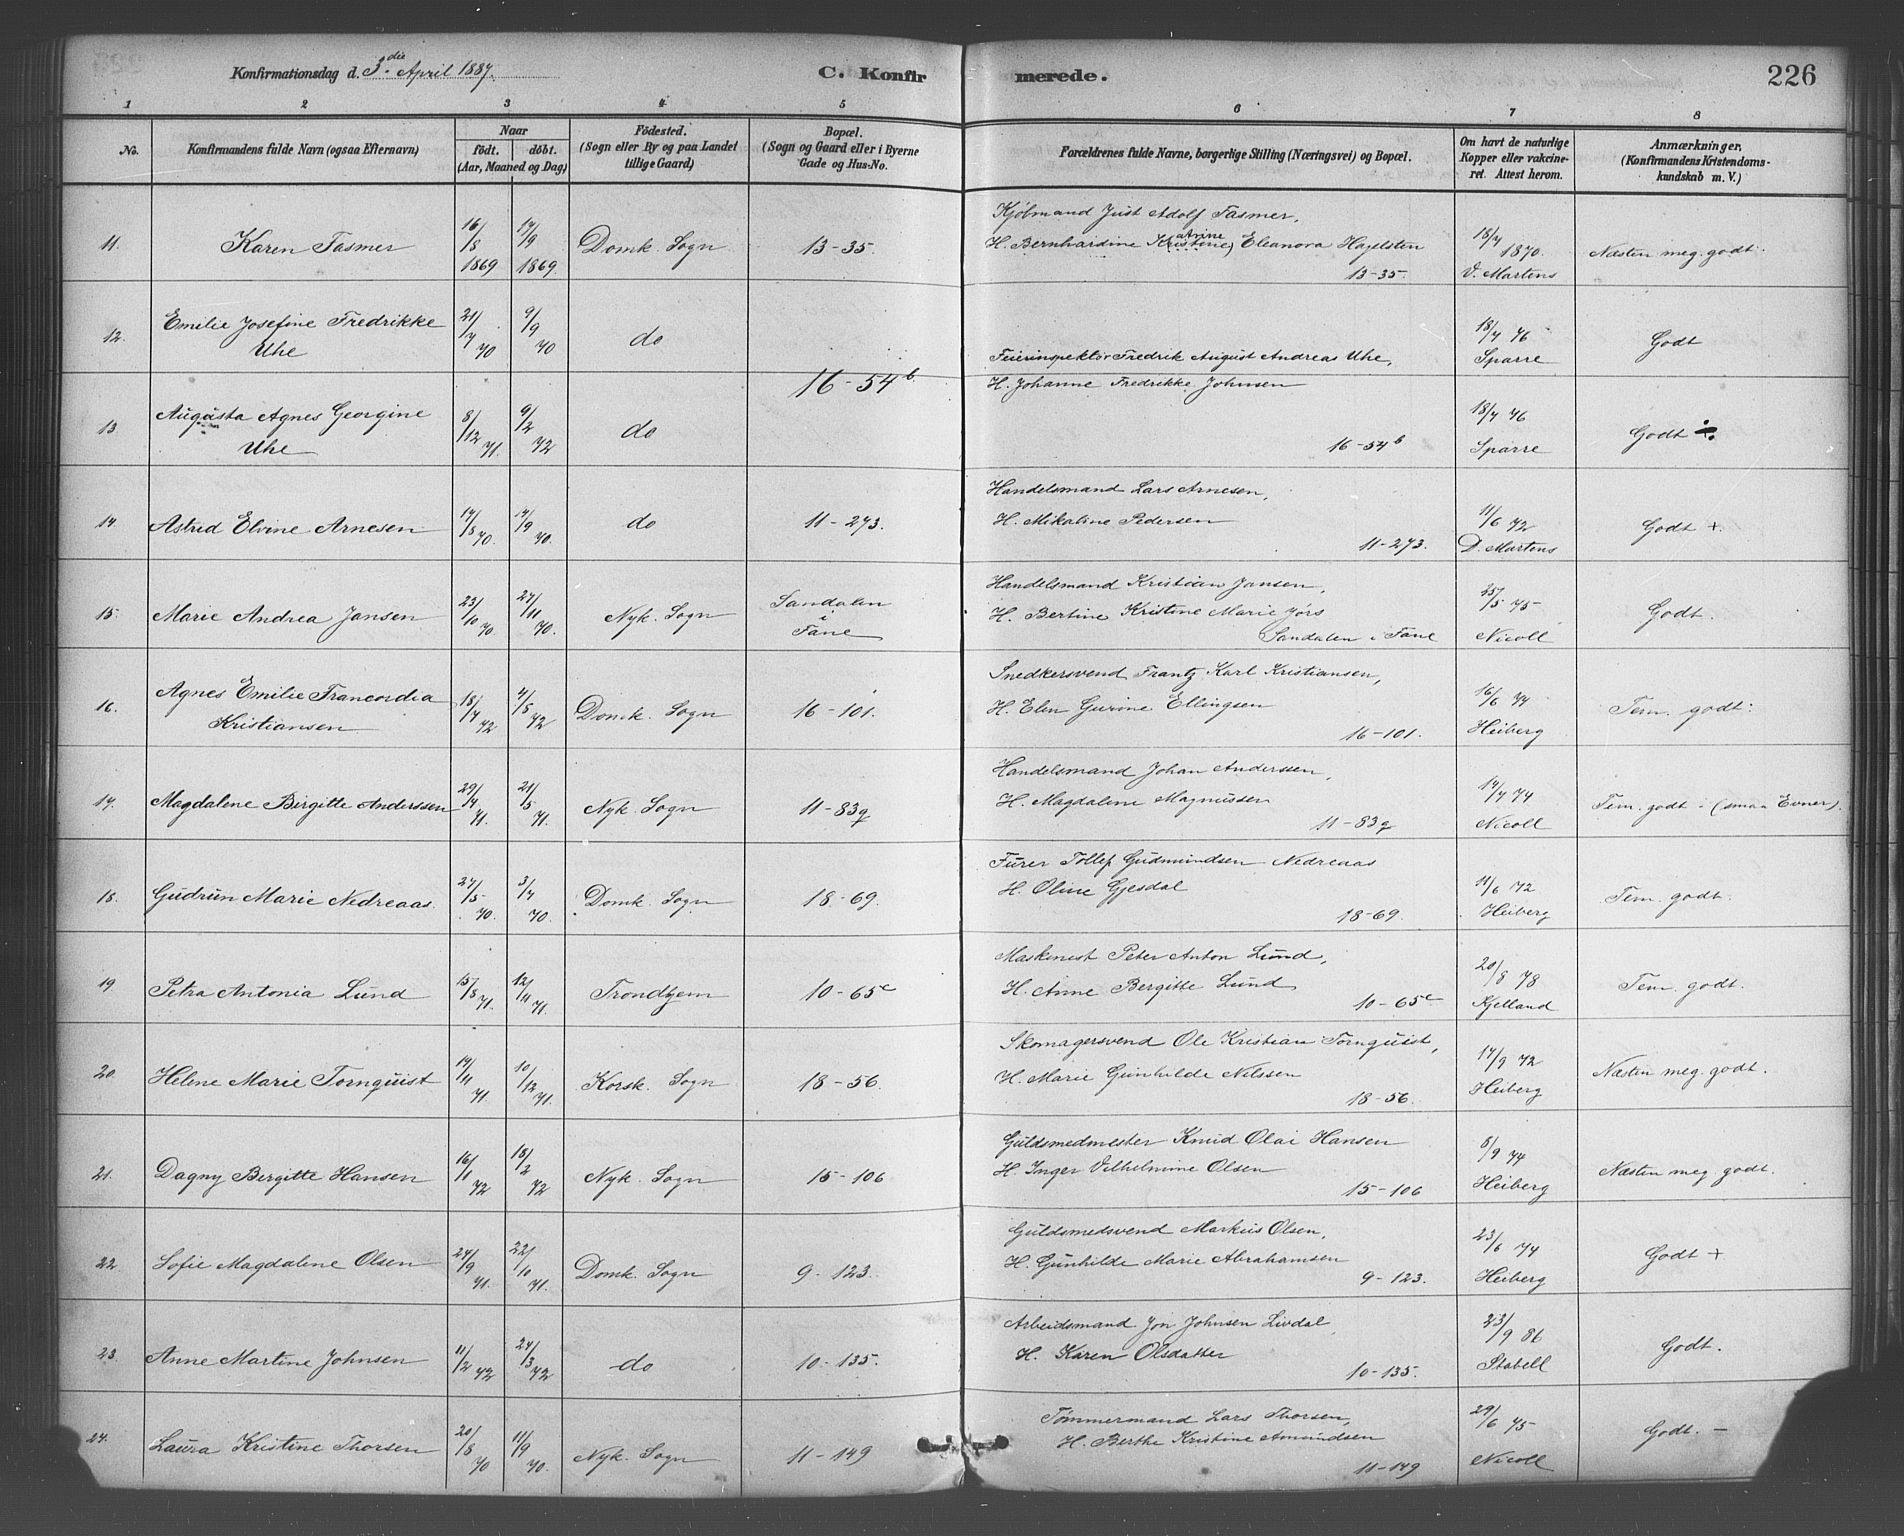 Konfirmationsdag d. 3die April 1887.
C. Konfirmerede.
226
1 2 3 4 5 6 7 8
No.
Konfirmandens fulde Navn (ogsaa Efternavn)
Naar
födt. döbt.
(Aar, Maaned og Dag)
Födested.
(Sogn eller By og paa Landet
tillige Gaard)
Bopæl.
(Sogn og Gaard eller i Byerne
Gade og Hus-No.
Forældrenes fulde Navne, borgerlige Stilling (Næringsvei) og Bopæl.
Om havt de naturlige
Kopper eller vakcine-
ret. Attest herom.
Anmærkninger,
(Konfirmandens Kristendoms-
kundskab m. V.)
11. Karen Fasmer 16/8 1869 17/9 1869 Domk. Sogn 13-35.
Kjöbmand Just Adolf Fasmer,
H. Bernhardine Kristine (atrine) Eleanora Hagelsten
13-35.
18/7 1870.
D. Martens
Næsten meg. godt.
12. Emilie Josefine Fredrikke
Uhe
21/7 70 9/9 70 do
16-54b
Feierinspektör Fredrik August Andreas Uhe,
H. Johanne Fredrikke Johnsen
18/7 76
Sparre
Godt
13. Augusta Agnes Georgine
Uhe
8/12 71. 9/2 72 do
16-54b
18/7 76
Sparre
Godt
14. Astrid Elvine Arnesen 17/8 70. 14/9 70. do 11-273.
Handelsmand Lars Arnesen,
H. Mikaline Pedersen
11-273.
11/6 72
D. Martens
Godt +.
15. Marie Andrea Jansen 23/10 70 27/11 70. Nyk. Sogn
Sandalen
i
Fane
Handelsmand Kristian Jansen,
H. Bertine Kristine Marie Jörs
Sandalen i Fane
25/5 75
Nicoll
Godt.
16. Agnes Emilie Francordia
Kristiansen
18/4 72 4/5 72 Domk. Sogn 16-101.
Snedkersvend Frantz Karl Kristiansen,
H. Elen Gurine Ellingsen
16-101.
16/6 74
Heiberg
Tem. godt.
17. Magdalene Birgitte Anderssen 29/4 71. 21/5 71. Nyk. Sogn 11-83g
Handelsmand Johan Anderssen,
H. Magdalene Magnussen
11-83g
14/7 74
Nicoll
Tem. godt - (smaa Evner).
18. Gudrun Marie Nedreaas. 27/5 70. 3/7 70. Domk. Sogn 18-69.
Furer Tollef Gudmundsen Nedreaas
H. Oline Gjesdal
18-69.
11/6 72
Heiberg
Tem. godt.
19 Petra Antonia Lund 15/8 71. 12/11 71. Trondhjem 10-65c
Maskinist Peter Anton Lund,
H. Anne Bergitte Lund
10-65c
20/8 78
Kjelland
Tem. godt.
20. Helene Marie Tornquist 14/11 71. 10/12 71. Korsk. Sogn 18-56.
Skomagersvend Ole Kristian Tornquist,
H. Marie Gunhilde Nilssen
18-56.
17/9 72
Heiberg
Næsten meg. godt.
21. Dagny Bergitte Hansen 16/1 72 18/2 72 Nyk. Sogn 15-106
Guldsmedmester Knud Olai Hansen
H. Inger Vilhelmine Olsen
15-106
8/9 74
Heiberg
Næsten meg godt.
22. Sofie Magdalene Olsen 24/9 71. 22/10 71. Domk. Sogn 9-123.
Guldsmedsvend Markus Olsen,
H. Gunhilde Marie Abrahamsen
9-123.
23/6 74
Heiberg
Godt +
23. Anne Martine Johnsen 11/2 72 24/3 72 do 10-135.
Arbeidsmand Jon Johnsen Livdal,
H. Karen Olsdatter
10-135.
23/9 86
Stabell
Godt.
24. Laura Kristine Thorsen 20/8 70 11/9 70. Nyk. Sogn 11-149
Tömmermand Lars Thorsen,
H. Berthe Kristine Amundsen
11-149
29/6 75
Nicoll
Godt. -